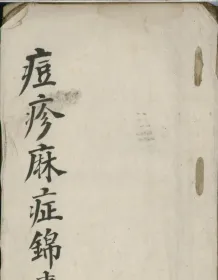 痘疹麻症錦